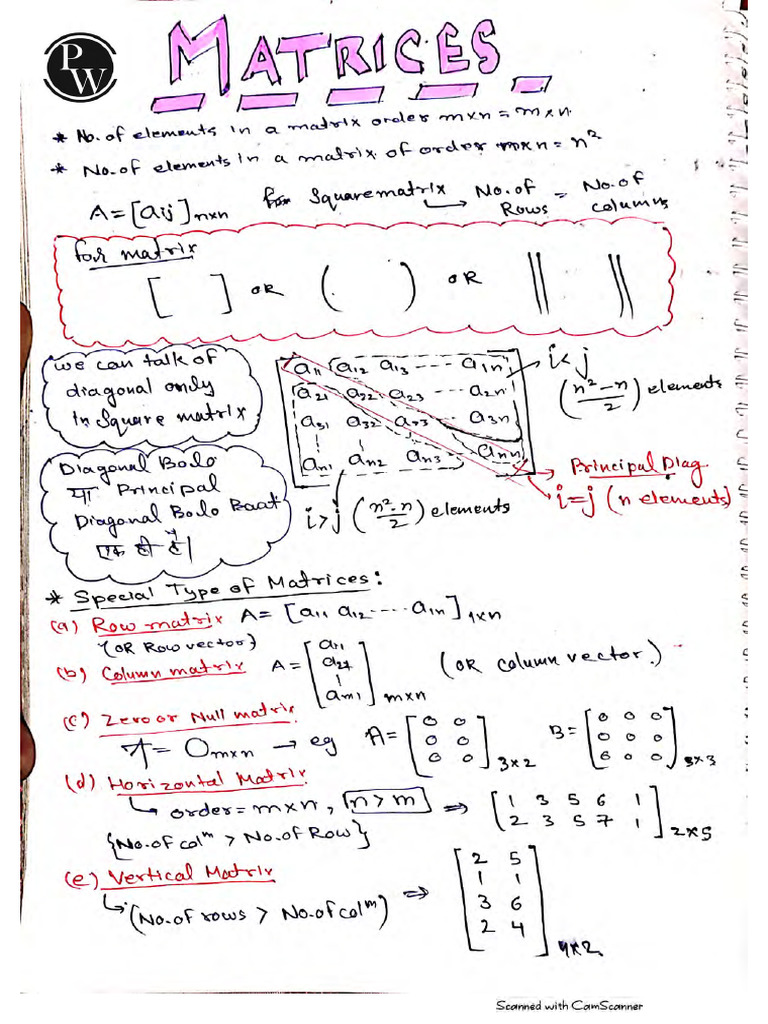 PW
MATRICES
* No. of elements in a matrix order m×n = m×n.
* No. of elements in a matrix of order n×n = n²
A = [aij]n×n for Square matrix → No. of Rows = No. of columns
for matrix
[ ] OR ( ) OR || ||
we can talk of
diagonal only
in Square matrix.
a11 a12 a13 ---- a1n
a21 a22 a23 --- a2n
a31 a32 a33 --- a3n
an1 an2 an3 --- ann
i<j
(n²-n/2) elements
Principal Diag.
i=j (n elements)
i>j (n²-n/2) elements
Diagonal Bolo
या Principal
Diagonal Bolo Baat
एक ही है।
* Special Type of Matrices:
(a) Row matrix A = [a11 a12 ---- a1n]1×n
(OR Row vector)
(b) Column matrix A = [a11 a21 | am1]m×n (OR column vector.)
(c) Zero or Null matrix
A = Om×n → eg A = [0 0
0 0
0 0]3×2 B = [0 0 0
0 0 0
0 0 0]3×3
(d) Horizontal Matrix
→ order = m×n, n>m ⇒ [1 3 5 6 1
2 3 5 7 1]2×5
{No. of colm > No. of Row}
(e) Vertical Matrix
→ (No. of rows > No. of colm) ⇒ [2 5
1 1
3 6
2 4]4×2
Scanned with CamScanner